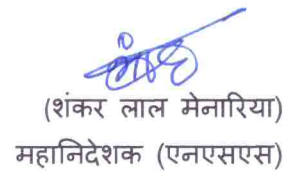 (शंकर लाल मेनारिया)
महानिदेशक (एनएसएस)